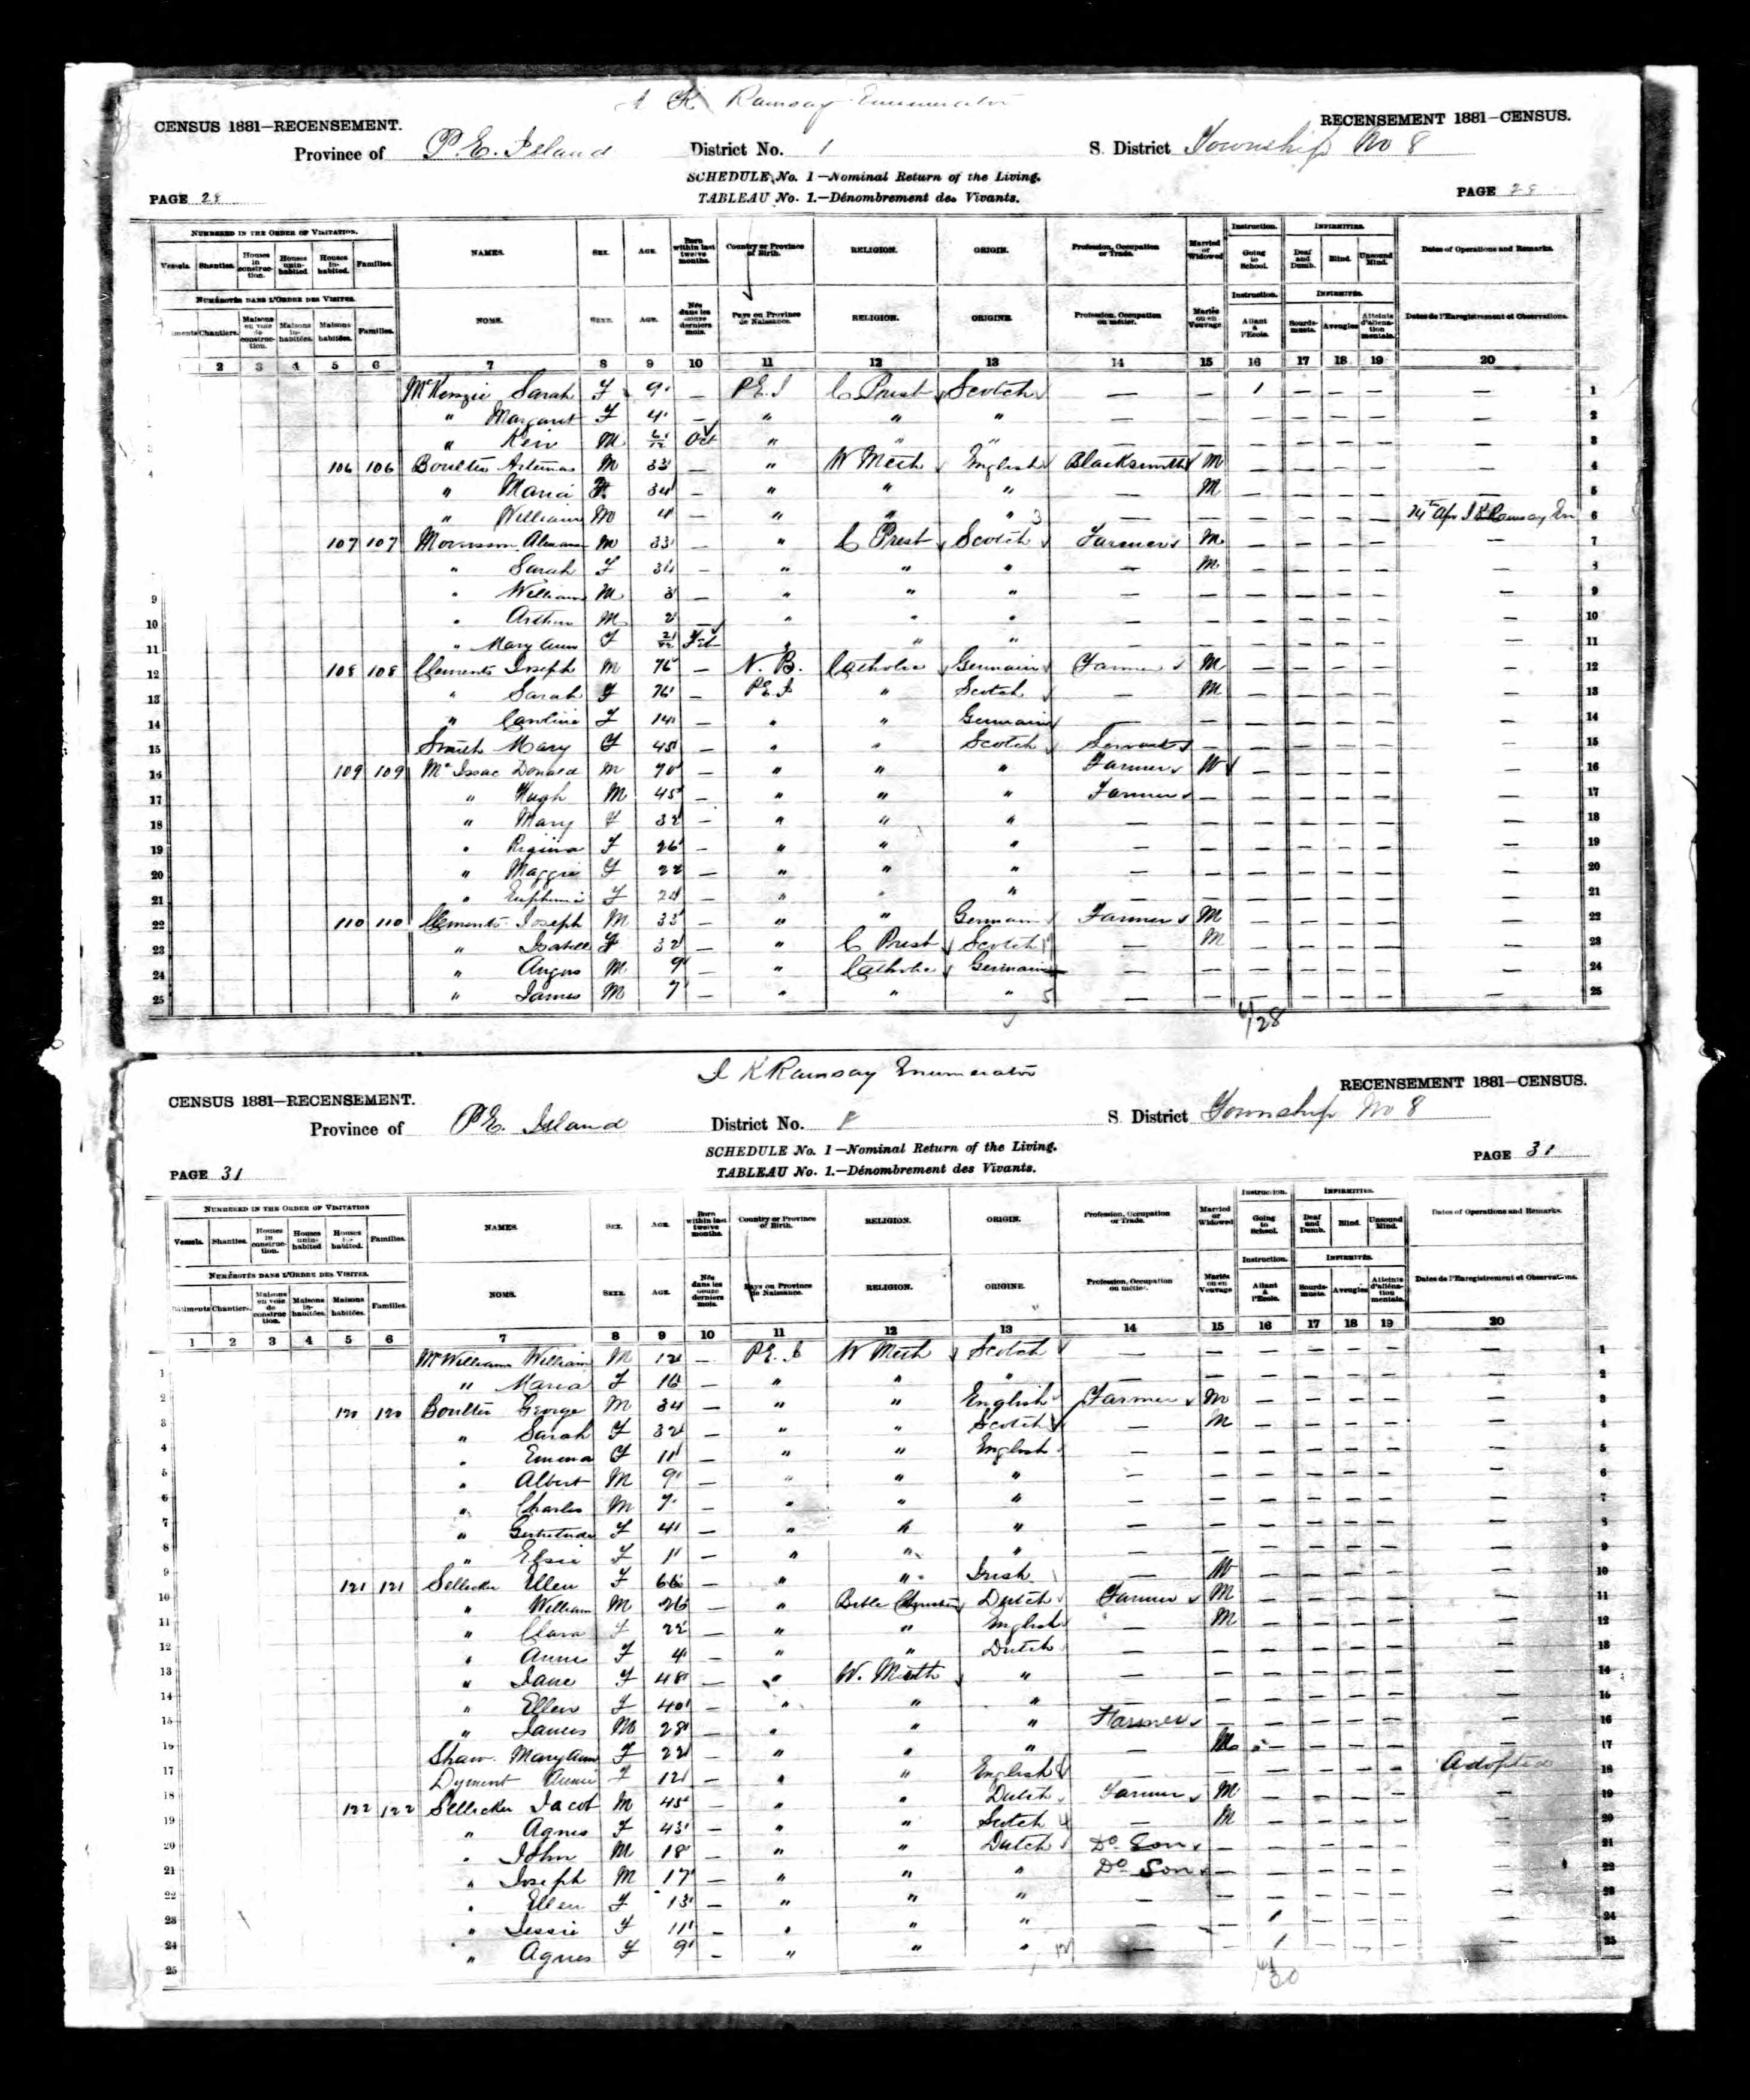 I K Ramsay Enumerator
CENSUS 1881—RECENSEMENT. RECENSEMENT 1881—CENSUS.
Province of P. E. Island District No. 1 S. District Township No 8
SCHEDULE No. 1—Nominal Return of the Living.
PAGE 28 TABLEAU No. 1.—Dénombrement des Vivants. PAGE 28
NUMBERED IN THE ORDER OF VISITATION. NAMES. SEX. AGE. Born within last twelve months. Country or Province of Birth. RELIGION. ORIGIN. Profession, Occupation or Trade. Married or Widowed Instruction. Going to School. INFIRMITIES. Deaf and Dumb. Blind. Unsound Mind. Dates of Operations and Remarks.
Vessels. Shanties. Houses in construction. Houses uninhabited. Houses inhabited. Families.
NUMÉROTÉS DANS L'ORDRE DES VISITES. NOMS. SEXE. AGE. Nés dans les douze derniers mois. Pays ou Province de Naissance. RELIGION. ORIGINE. Profession, Occupation ou métier. Mariés ou en Veuvage Instruction. Allant à l'Ecole. INFIRMITÉS. Sourds-muets. Aveugles Atteints d'aliénation mentale. Dates de l'Enregistrement et Observations.
Chantiers. Maisons en voie de construction. Maisons inhabitées. Maisons habitées. Familles.
2 3 4 5 6 7 8 9 10 11 12 13 14 15 16 17 18 19 20
McKenzie Sarah F 9 — P.E.I C Presb Scotch — — 1 — — — — 1
" Margaret F 4 — " " " — — — — — — — 2
" Keir M 6/12 Oct " " " — — — — — — — 3
106 106 Boulter Artemas M 33 — " W Meth English Blacksmith M — — — — — 4
" Maria F 34 — " " " — M — — — — — 5
" William M 4 — " " " 3 — — — — — — 14th Apr I K Ramsay En 6
107 107 Morrisson M 33 — " C Presb Scotch Farmer M — — — — — 7
" Sarah F 34 — " " " — M — — — — — 8
9 " William M 3 — " " " — — — — — — — 9
10 " Arthur M 2 — " " " — — — — — — — 10
11 " Mary Ann F 2/12 Feb " " — — — — — — — 11
12 108 108 Clements Joseph M 76 — N. B. Catholic Germain Farmer M — — — — — 12
13 " Sarah F 76 — P.E.I " Scotch — M — — — — — 13
14 " Caroline F 14 — " " Germain — — — — — — — 14
15 Smith Mary F 45 — " " Scotch Servant — — — — — — 15
16 109 109 McIssac Donald M 70 — " " " Farmer W — — — — — 16
17 " Hugh M 45 — " " " Farmer — — — — — — 17
18 " Mary F 32 — " " " — — — — — — — 18
19 " Rigina F 26 — " " " — — — — — — — 19
20 " Maggie F 22 — " " " — — — — — — — 20
21 " Euphemia F 20 — " " " — — — — — — — 21
22 110 110 Clements Joseph M 33 — " " German Farmer M — — — — — 22
23 " Isabell F 32 — " C Presb Scotch — M — — — — — 23
24 " Angus M 9 — " Catholic Germain — — — — — — — 24
25 " James M 7 — " " " 5 — — — — — — — 25
28
I K Ramsay Enumerator
CENSUS 1881—RECENSEMENT. RECENSEMENT 1881—CENSUS.
Province of P.E. Island District No. S. District Township No 8
SCHEDULE No. 1—Nominal Return of the Living.
PAGE 31 TABLEAU No. 1.—Dénombrement des Vivants. PAGE 31
NUMBERED IN THE ORDER OF VISITATION NAMES. SEX. AGE. Born within last twelve months. Country or Province of Birth. RELIGION. ORIGIN. Profession, Occupation or Trade. Married or Widowed Instruction. Going to School. INFIRMITIES. Deaf and Dumb. Blind. Unsound Mind. Dates of Operations and Remarks.
Vessels. Shanties. Houses in construction. Houses uninhabited Houses inhabited. Families.
NUMÉROTÉS DANS L'ORDRE DES VISITES. NOMS. SEXE. AGE. Nés dans les douze derniers mois. Pays ou Province de Naissance. RELIGION. ORIGINE. Profession, Occupation ou métier. Mariés ou en Veuvage Instruction. Allant à l'Ecole. INFIRMITÉS. Sourds-muets. Aveugles Atteints d'aliénation mentale. Dates de l'Enregistrement et Observations.
Bâtiments Chantiers. Maisons en voie de construction. Maisons inhabitées. Maisons habitées. Familles.
1 2 3 4 5 6 7 8 9 10 11 12 13 14 15 16 17 18 19 20
1 McWilliams William M 12 — P.E.I W Meth Scotch — — — — — — — 1
2 " Maria F 16 — " " " — — — — — — — 2
3 120 120 Boulter George M 34 — " " English Farmer M — — — — — 3
4 " Sarah F 32 — " " Scotch — M — — — — — 4
5 " Emma F 11 — " " English — — — — — — — 5
6 " Albert M 9 — " " " — — — — — — — 6
7 " Charles M 7 — " " " — — — — — — — 7
8 " Gertrude F 4 — " " " — — — — — — — 8
9 " Elsie F 1 — " " " — — — — — — — 9
10 121 121 Sellicker Ellen F 66 — " " Irish — W — — — — — 10
11 " William M 26 — " Bible Christian Dutch Farmer M — — — — — 11
12 " Clara F 22 — " " English — M — — — — — 12
13 " Annie F 4 — " " Dutch — — — — — — — 13
14 " Jane F 48 — " W. Meth " — — — — — — — 14
15 " Ellen F 40 — " " " — — — — — — — 15
16 " James M 28 — " " " Farmer — — — — — — 16
17 Shaw Mary Ann F 22 — " " " — M — — — — — 17
18 Dyment Annie F 12 — " " English — — — — — — Adopted 18
19 122 122 Sellicker Jacob M 45 — " " Dutch Farmer M — — — — — 19
20 " Agnes F 43 — " " Scotch — M — — — — — 20
21 " John M 18 — " " Dutch Do Son — — — — — — 21
22 " Joseph M 17 — " " " Do Son — — — — — — 22
23 " Ellen F 13 — " " " — — — — — — — 23
24 " Jessie F 11 — " " " — — 1 — — — — 24
25 " Agnes F 9 — " " " — — 1 — — — — 25